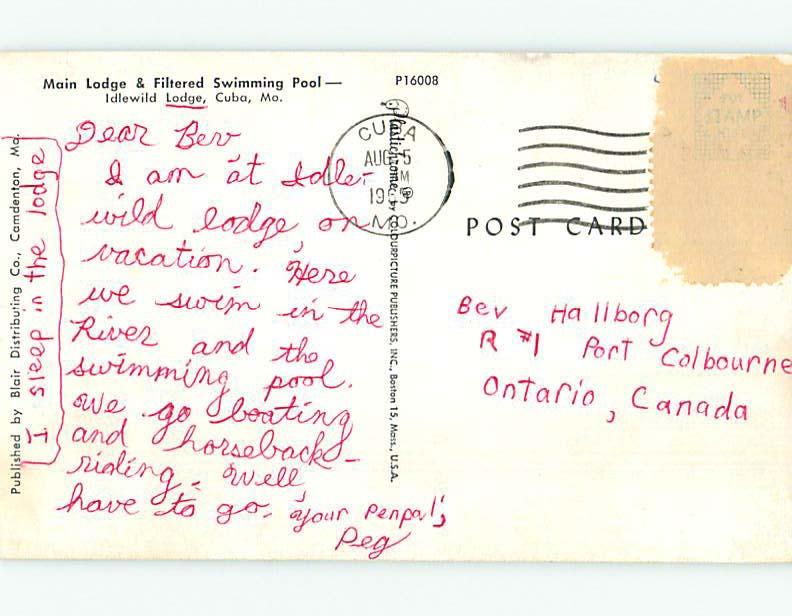 Main Lodge & Filtered Swimming Pool —
Idlewild Lodge, Cuba, Mo.
P16008
Dear Bev
I am at Idle-
wild lodge, on
vacation. Here
we swim in the
River and the
swimming pool.
We go boating
and horseback-
riding. Well,
have to go. your penpal,
Peg
I sleep in the lodge
Published by Blair Distributing Co., Camdenton, Mo.
Plastichrome ® by COLOURPICTURE PUBLISHERS, INC., Boston 15, Mass., U.S.A.
CUBA
AUG 5
M
MO.
POST CARD
STAMP
Bev Hallborg
R #1 Port Colbourne
Ontario, Canada